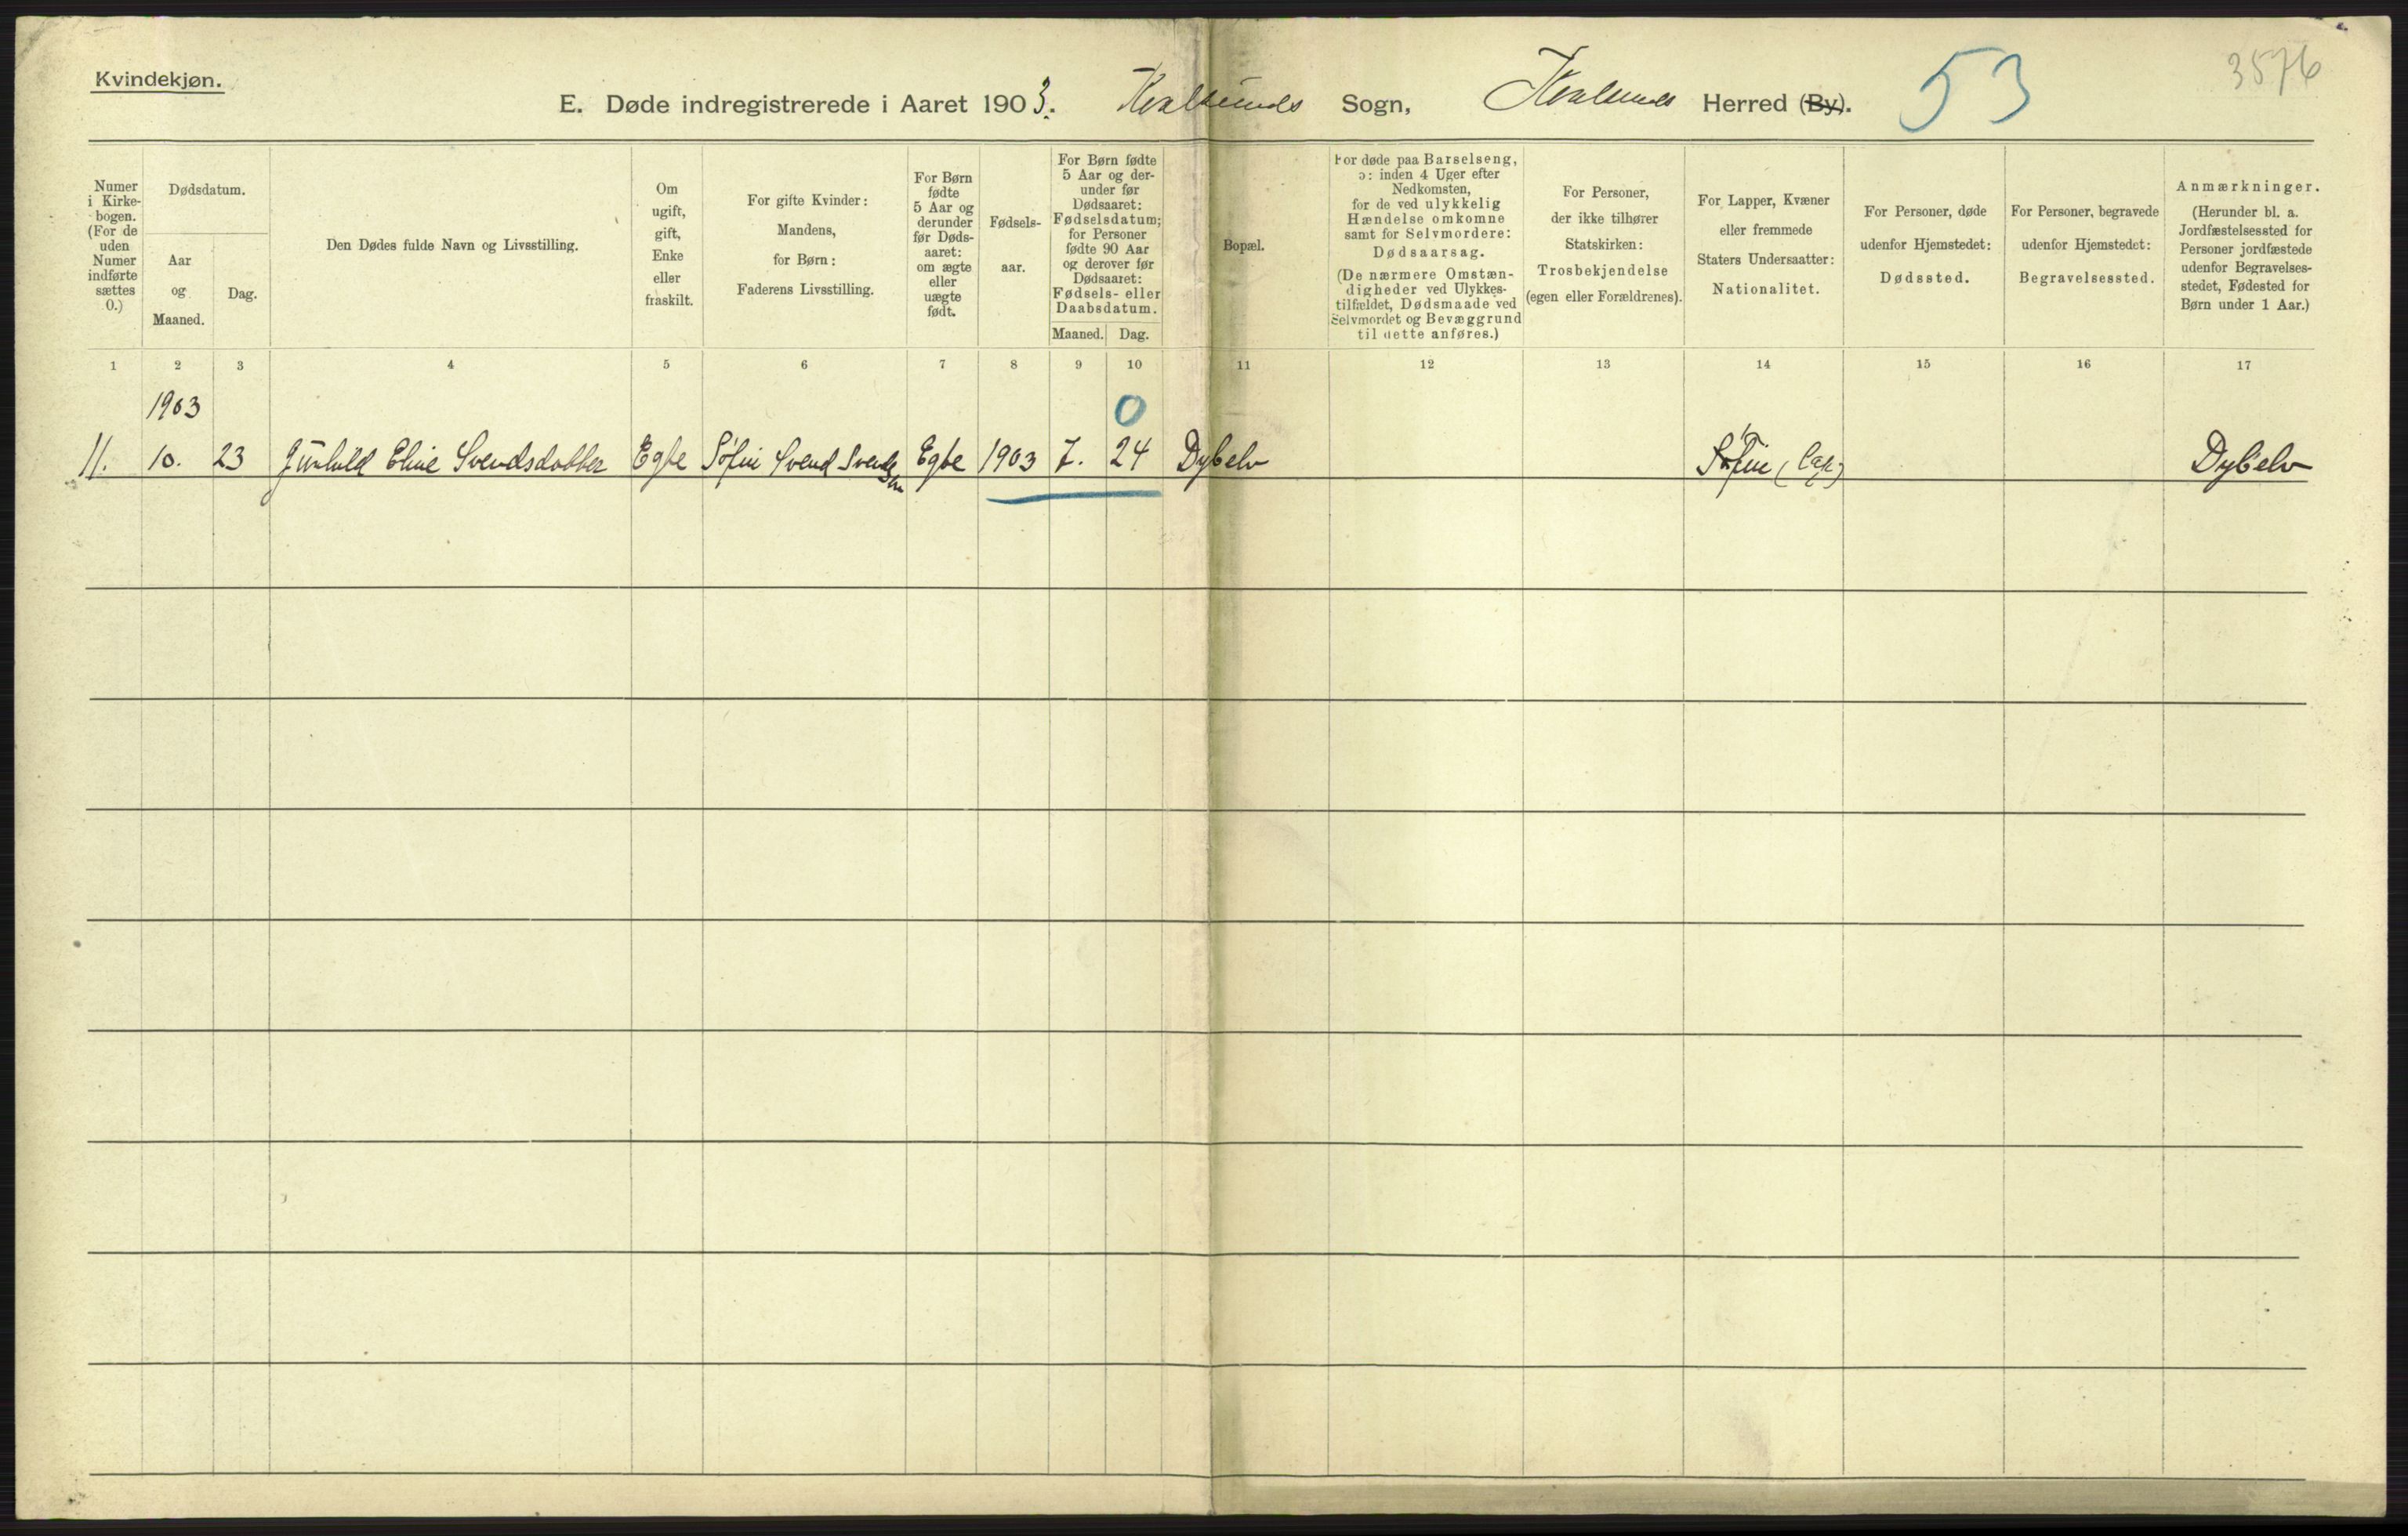 Kvindekjøn.
3576
E. Døde indregistrerede i Aaret 1903. Kvalsunds Sogn, Kvalsunds Herred (By).
53
Numer i Kirkebogen. (For de uden Numer indførte sættes 0.)
Dødsdatum.
Aar og Maaned.
Dag.
Den Dødes fulde Navn og Livsstilling.
Om ugift, gift, Enke eller fraskilt.
For gifte Kvinder: Mandens, for Børn: Faderens Livsstilling.
For Børn fødte 5 Aar og derunder før Dødsaaret: om ægte eller uægte født.
Fødselsaar.
For Børn fødte 5 Aar og derunder før Dødsaaret: Fødselsdatum; for Personer fødte 90 Aar og derover før Dødsaaret: Fødsels- eller Daabsdatum.
Maaned. Dag.
Bopæl.
For døde paa Barselseng, ɔ: inden 4 Uger efter Nedkomsten, for de ved ulykkelig Hændelse omkomne samt for Selvmordere: Dødsaarsag. (De nærmere Omstændigheder ved Ulykkestilfældet, Dødsmaade ved Selvmordet og Bevæggrund til dette anføres.)
For Personer, der ikke tilhører Statskirken: Trosbekjendelse (egen eller Forældrenes).
For Lapper, Kvæner eller fremmede Staters Undersaatter: Nationalitet.
For Personer, døde udenfor Hjemstedet: Dødssted.
For Personer, begravede udenfor Hjemstedet: Begravelsessted.
Anmærkninger. (Herunder bl. a. Jordfæstelsessted for Personer jordfæstede udenfor Begravelsesstedet, Fødested for Børn under 1 Aar.)
1 2 3 4 5 6 7 8 9 10 11 12 13 14 15 16 17
1903
0
11. 10. 23 Gunhild Eline Svendsdatter Egte Søfin Svend Svendsen Egte 1903 7. 24 Dybelv Søfin (Lap) Dybelv